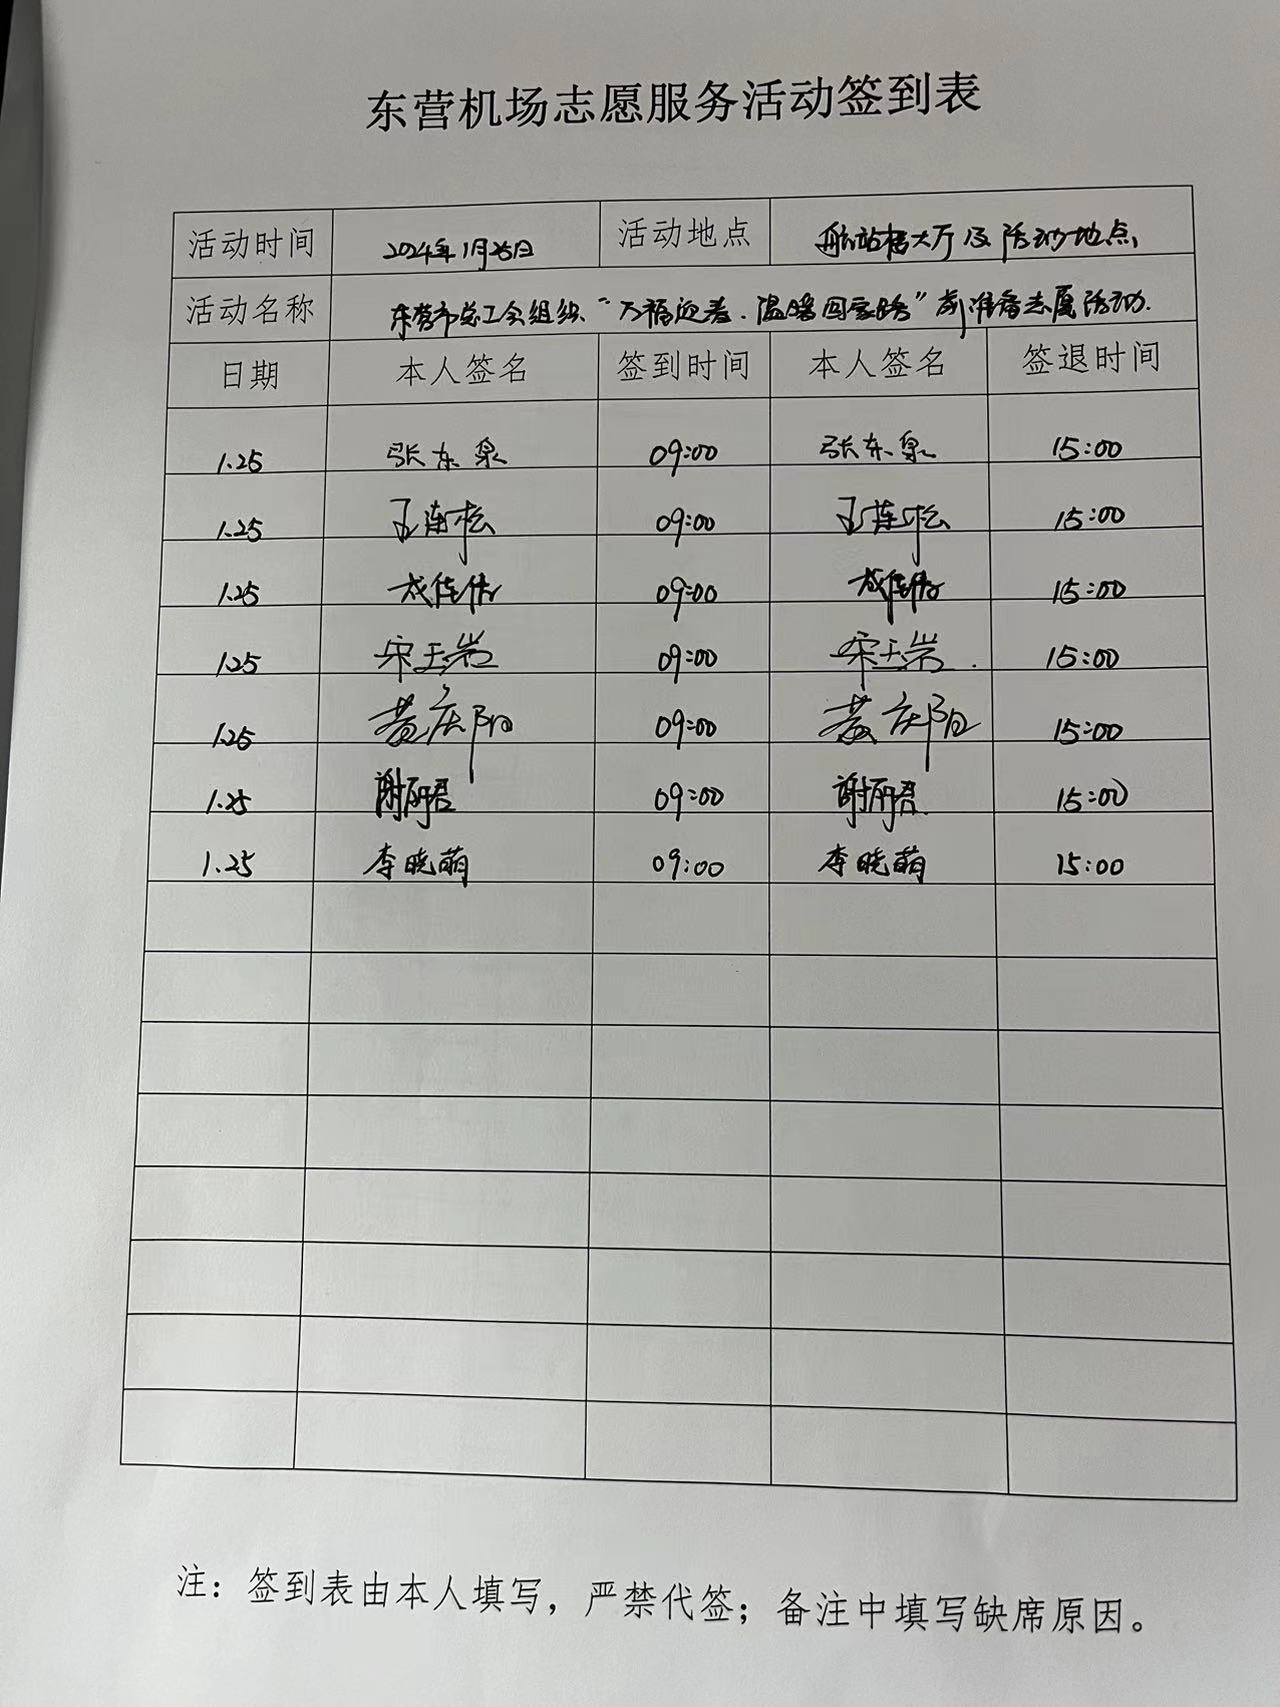 东营机场志愿服务活动签到表
活动时间 2024年1月25日 活动地点 航站楼大厅及活动地点
活动名称 东营市总工会组织“万福迎春.温暖回家路”前准备志愿活动.
日期 本人签名 签到时间 本人签名 签退时间
1.25 张东泉 09:00 张东泉 15:00
1.25 王连松 09:00 王连松 15:00
1.25 09:00 15:00
1.25 宋玉岩 09:00 宋玉岩 15:00
1.25 黄庆阳 09:00 黄庆阳 15:00
1.25 谢丽君 09:00 谢丽君 15:00
1.25 李晓萌 09:00 李晓萌 15:00
注：签到表由本人填写，严禁代签；备注中填写缺席原因。